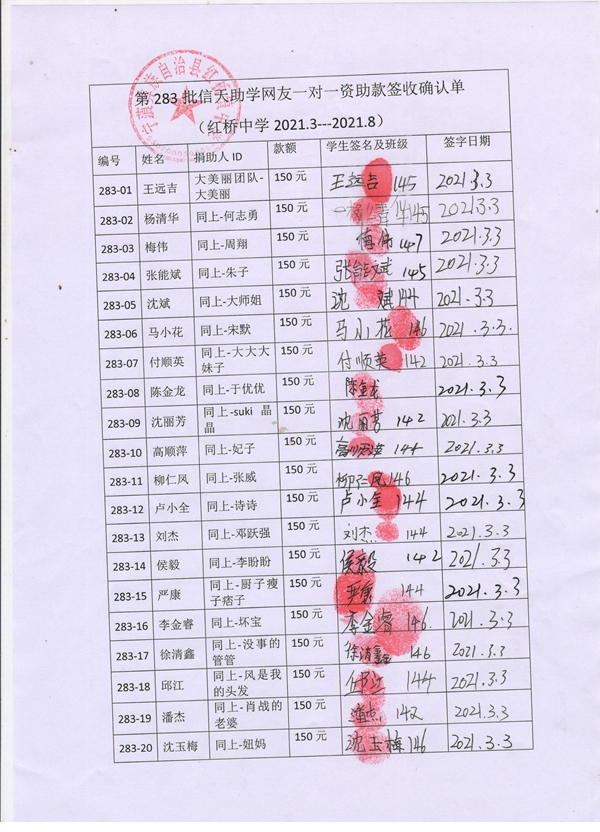 第 283 批信天助学网友一对一资助款签收确认单
（红桥中学 2021.3---2021.8）
编号 姓名 捐助人 ID 款额 学生签名及班级 签字日期
283-01 王远吉 大美丽团队-大美丽 150 元 王远吉 145 2021.3.3
283-02 杨清华 同上-何志勇 150 元 145 2021.3.3
283-03 梅伟 同上-周翔 150 元 梅伟 147 2021.3.3
283-04 张能斌 同上-朱子 150 元 张能斌 145 2021.3.3
283-05 沈斌 同上-大师姐 150 元 沈斌 144 2021.3.3
283-06 马小花 同上-宋默 150 元 马小花 146 2021.3.3.
283-07 付顺英 同上-大大大妹子 150 元 付顺英 142 2021.3.3
283-08 陈金龙 同上-于优优 150 元 陈金龙 2021.3.3
283-09 沈丽芳 同上-suki 晶晶 150 元 沈丽芳 142 2021.3.3
283-10 高顺萍 同上-妃子 150 元 高顺萍 144 2021.3.3
283-11 柳仁凤 同上-张威 150 元 柳仁凤 146 2021.3.3
283-12 卢小全 同上-诗诗 150 元 卢小全 144 2021.3.3
283-13 刘杰 同上-邓跃强 150 元 刘杰 144 2021.3.3
283-14 侯毅 同上-李盼盼 150 元 侯毅 142 2021.3.3
283-15 严康 同上-厨子瘦子痞子 150 元 严康 144 2021.3.3
283-16 李金睿 同上-坏宝 150 元 李金睿 146 2021.3.3
283-17 徐清鑫 同上-没事的管管 150 元 徐清鑫 146 2021.3.3
283-18 邱江 同上-风是我的头发 150 元 邱江 144 2021.3.3
283-19 潘杰 同上-肖战的老婆 150 元 潘杰 142 2021.3.3
283-20 沈玉梅 同上-妞妈 150 元 沈玉梅 146 2021.3.3